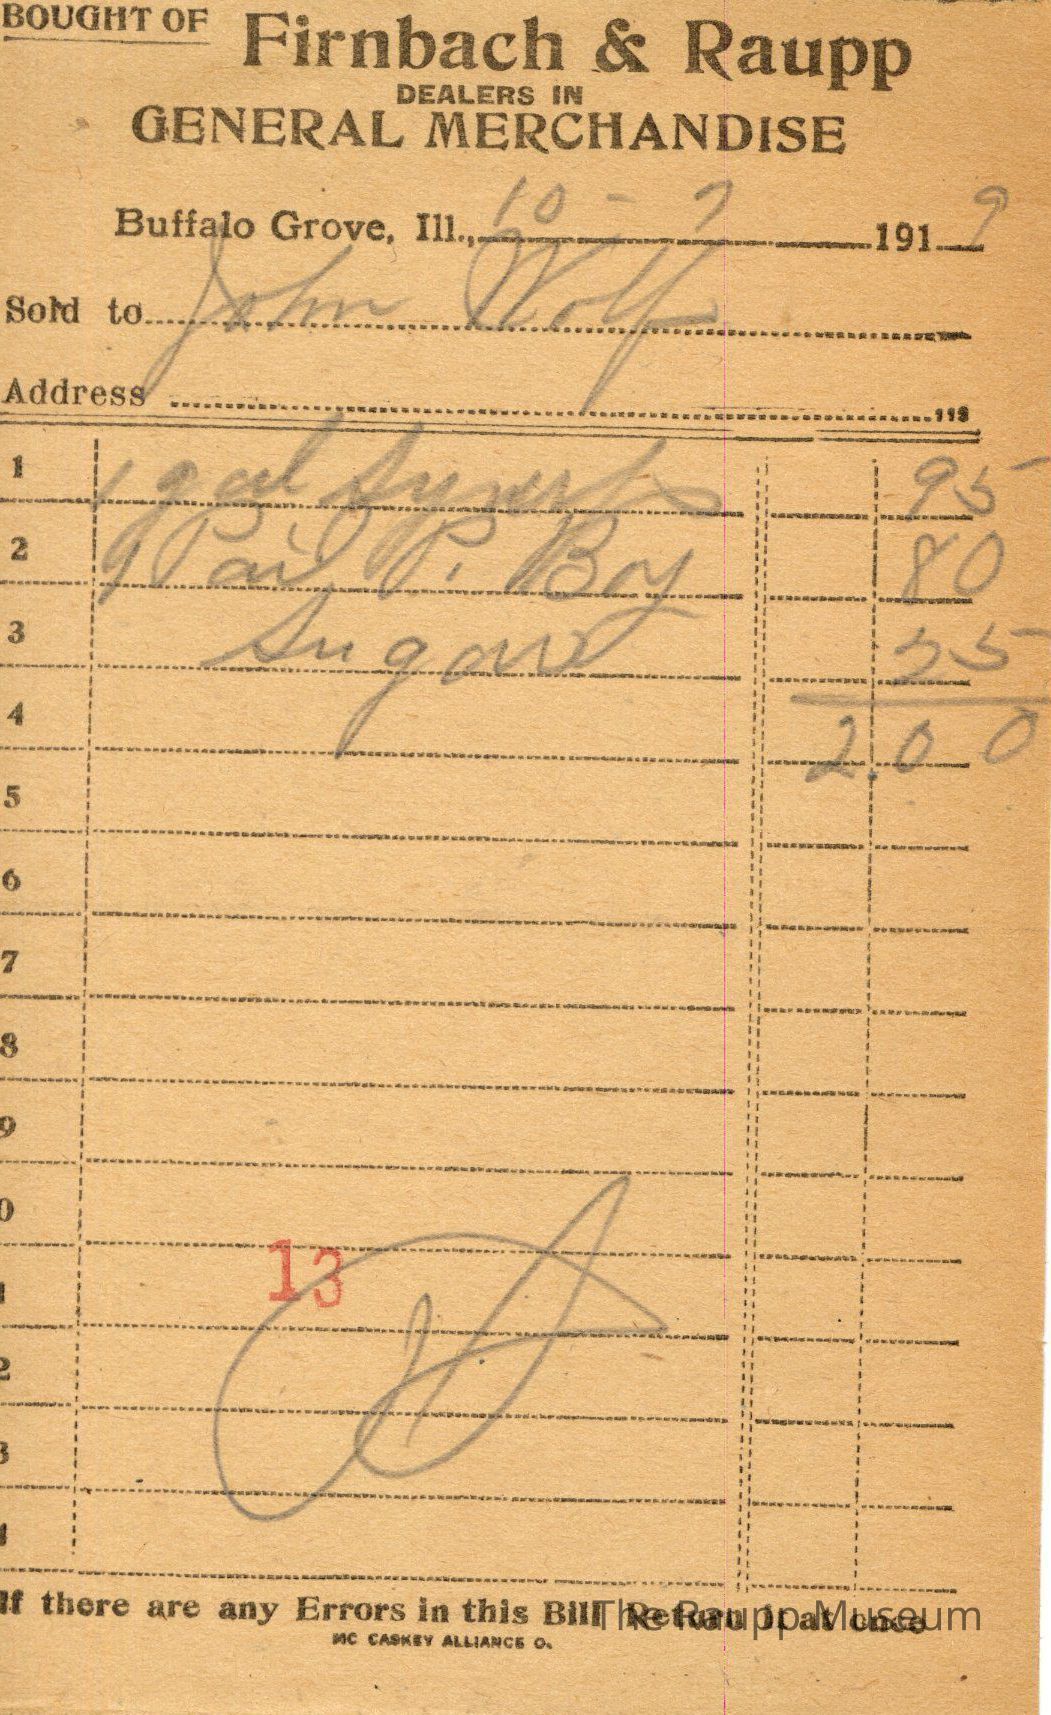 BOUGHT OF Firnbach & Raupp
DEALERS IN
GENERAL MERCHANDISE
Buffalo Grove, Ill., 10 - 7 1919
Sold to John Wolf
Address
113
1 1 gal Syrup 95
2 1 Pail P. Boy 80
3 Sugar 25
4 2.00
5
6
7
8
9
0
13
1
2
3
4
If there are any Errors in this Bill Return it at once
The Raupp Museum
MC CASKEY ALLIANCE O.